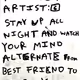 ARTISTS
STAY UP ALL
NIGHT AND WATCH
YOUR MIND
ALTERNATE FROM
BEST FRIEND TO